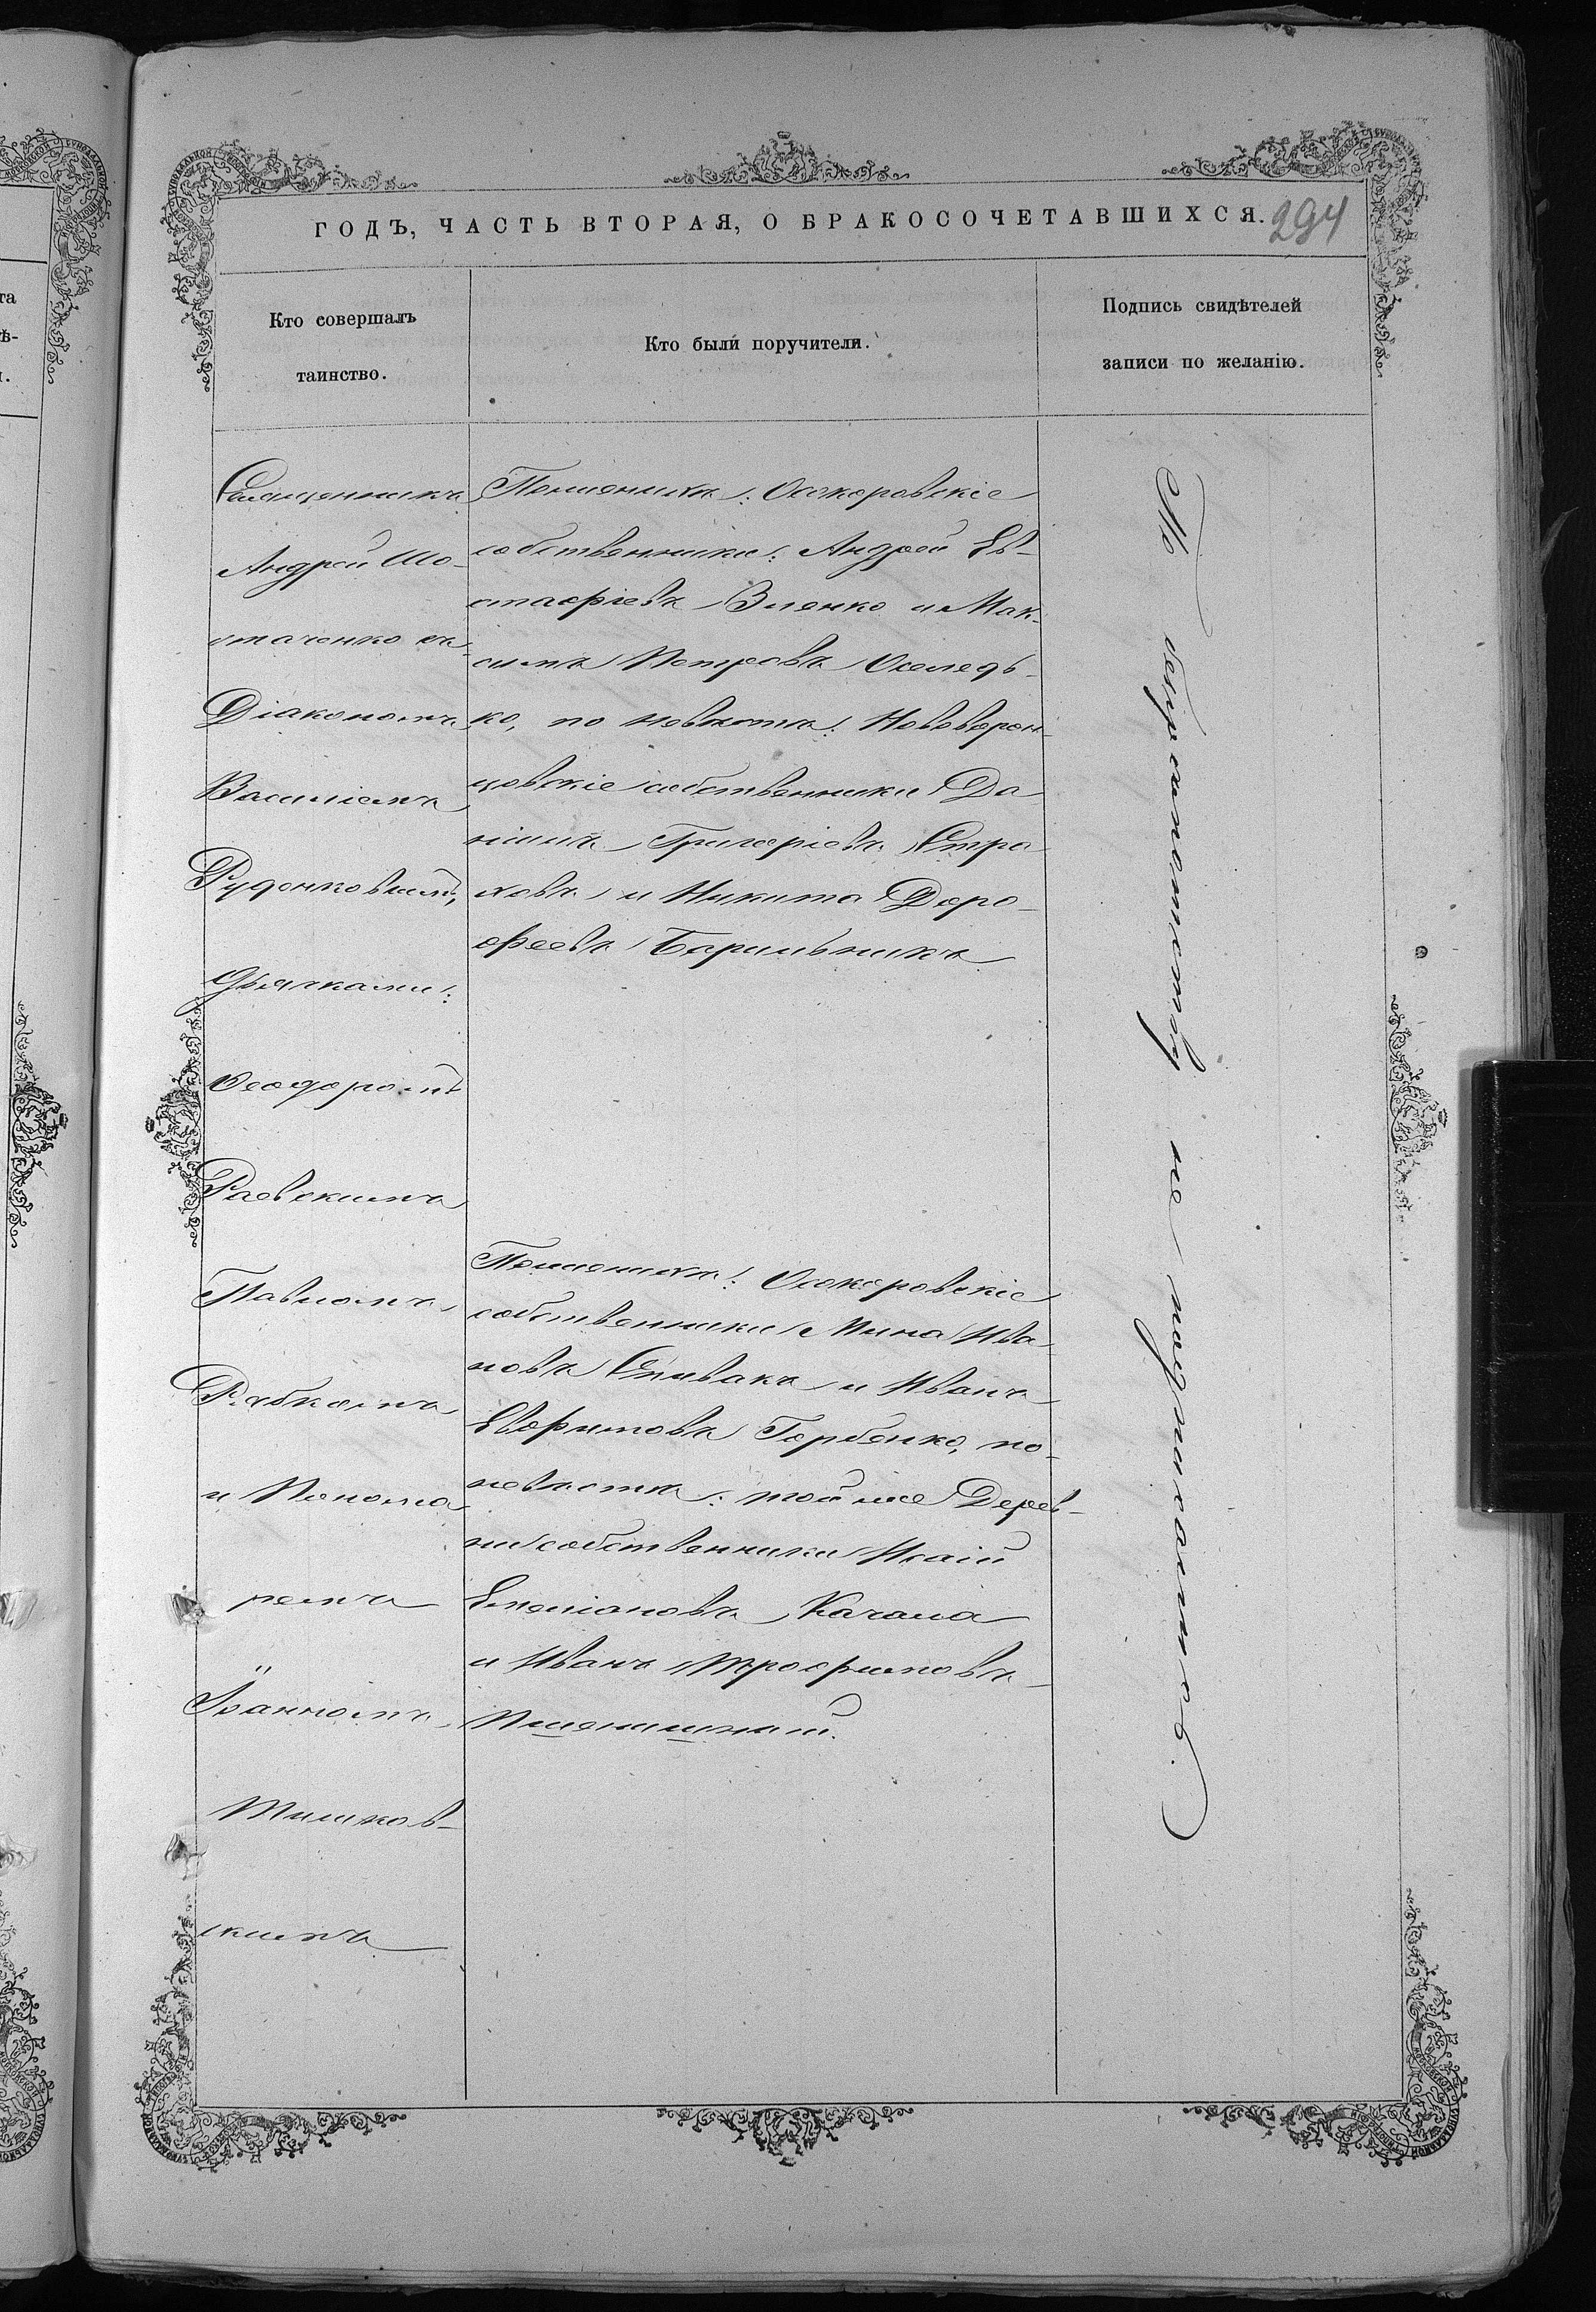 ГОДЪ, ЧАСТЬ ВТОРАЯ, О БРАКОСОЧЕТАВШИХСЯ.
294
Кто совершалъ
таинство.
Кто были поручители.
Подпись свидѣтелей
записи по желанію.
Священникъ
Андрей Шо-
стаченко съ
Діакономъ
Василіемъ
Руденковымъ,
дьячками:
Ѳеодоромъ
Раевскимъ
Павломъ
Рябкомъ
и Понома
ремъ
Іоанномъ
Тишков-
скимъ
По женихѣ: Осокоровскіе
собственники: Андрей Ев-
стафіевъ Зленко и Мак-
симъ Петровъ Оселедь-
ко, по невѣстѣ: Нововорон-
цовскіе собственники Да
ніилъ Григоріевъ Стра
ховъ и Никита Доро-
феевъ Барильникъ
По женихѣ: Осокоровскіе
собственники Мина Ива
новъ Спивакъ и Иванъ
Евфимовъ Горбенко, по
невѣстѣ: той же Дерев-
ни собственники Исаій
Емеліановъ Качала
и Иванъ Трофимовъ
Пшенишный.
По неграмотству не подписались.